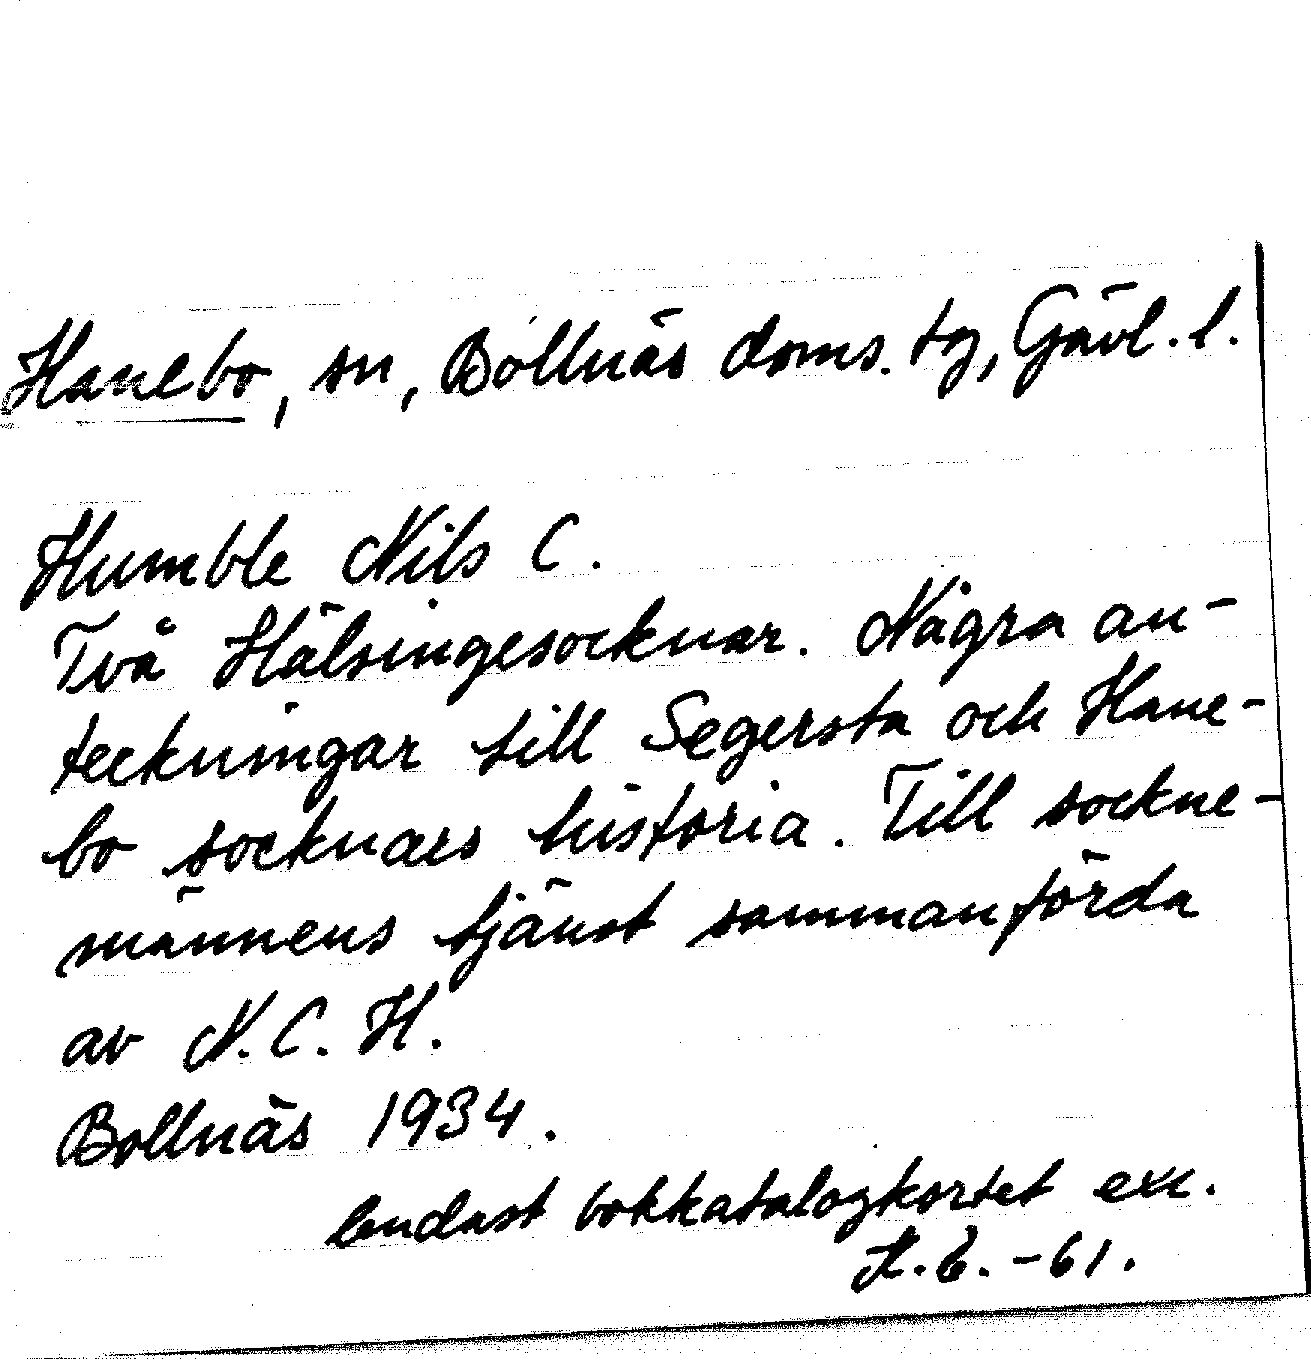 Hanebo, sn, Bollnäs doms. tg, Gävl. l.
Humble Nils C.
Två Hälsingesocknar. Några an-
teckningar till Segersta och Hane-
bo socknars historia. Till sockne-
männens tjänst sammanförda
av N. C. H.
Bollnäs 1934.
Endast bokkatalogkortet exc.
-61.